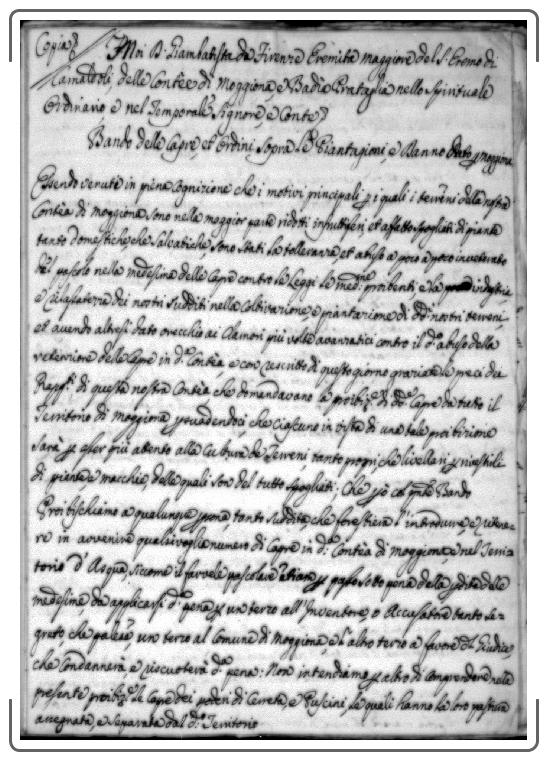 Copia
Noi D. Giambatista da Firenze Eremita Maggiore del S. Eremo di
Camaldoli, delle Contèe di Moggiona, e Badia Prataglia nello Spirituale
Ordinario, e nel Temporale Signore, e Conte
Bando delle Capre, et Ordini Sopra le Piantagioni, e Banno Moggiona
Essendo venuta in piena Cognizione che i motivi principali p i quali i terreni della nostra
Contèa di Moggiona Sono nella maggior parte ridotti infruttiferi et affatto Spogliati di piante
tanto Domestiche che Salvatiche, Sono Stati la tolleranza et abuso a poco a poco inveterato
del pascolo nella medesima delle Capre contro le Leggi le med.me proibenti e la
e dei nostri Sudditi nella Coltivazione e piantazione di dd.i nostri terreni,
et avendo altresì dato orecchio ai Clamori più volte avanzatici contro il d.o abuso della
delle Capre in d.a Contèa, e con rescritto di questo giorno graziate le preci dei
Rapp.ti di questa nostra Contèa che domandavano la proibiz.e di dd.e Capre da tutto il
Territorio di Moggiona psuadendoci, che ciascuno in vista di una tale proibizione
Sarà p esser più attento alla Cultura de Terreni tanto proprj che livellarj p rivestirli
di piante e macchie, delle quali Son del tutto Spogliati; Che p ciò col pnte Bando
Proibischiamo a qualunque psona tanto Suddita che forestiera l'introdurre, e ritene=
re in avvenire qualsivoglia numero di Capre in d.a Contèa di Moggiona, e nel Terri=
torio d'Asqua, siccome il farvele pascolare p passo Sotto pena della pdita delle
medesime da applicarsi d.a pena p un terzo all'Inventore, o Accusatore tanto Se=
greto che palese, un terzo al Comune di Moggiona, e l'altro terzo a favore del Giudice,
che Condannerà, e riscuoterà d.a pena: Non intendiamo p altro di Comprendere nella
presente proibiz.e le Capre dei poderi di Cerreta, e Puscini, le quali hanno la loro pastura
assegnata, e Separata dal d.o Territorio